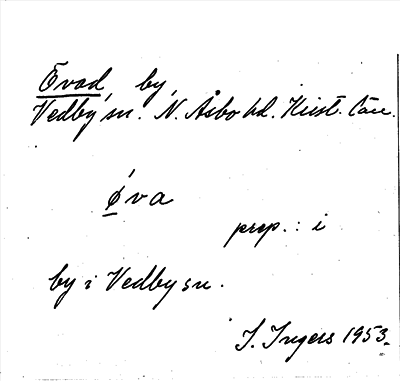 Evad, by,
Vedby sn. N. Åsbo hd. Krist. län.
ǿva
prep.: i
by i Vedby sn.
I. Ingers 1953.